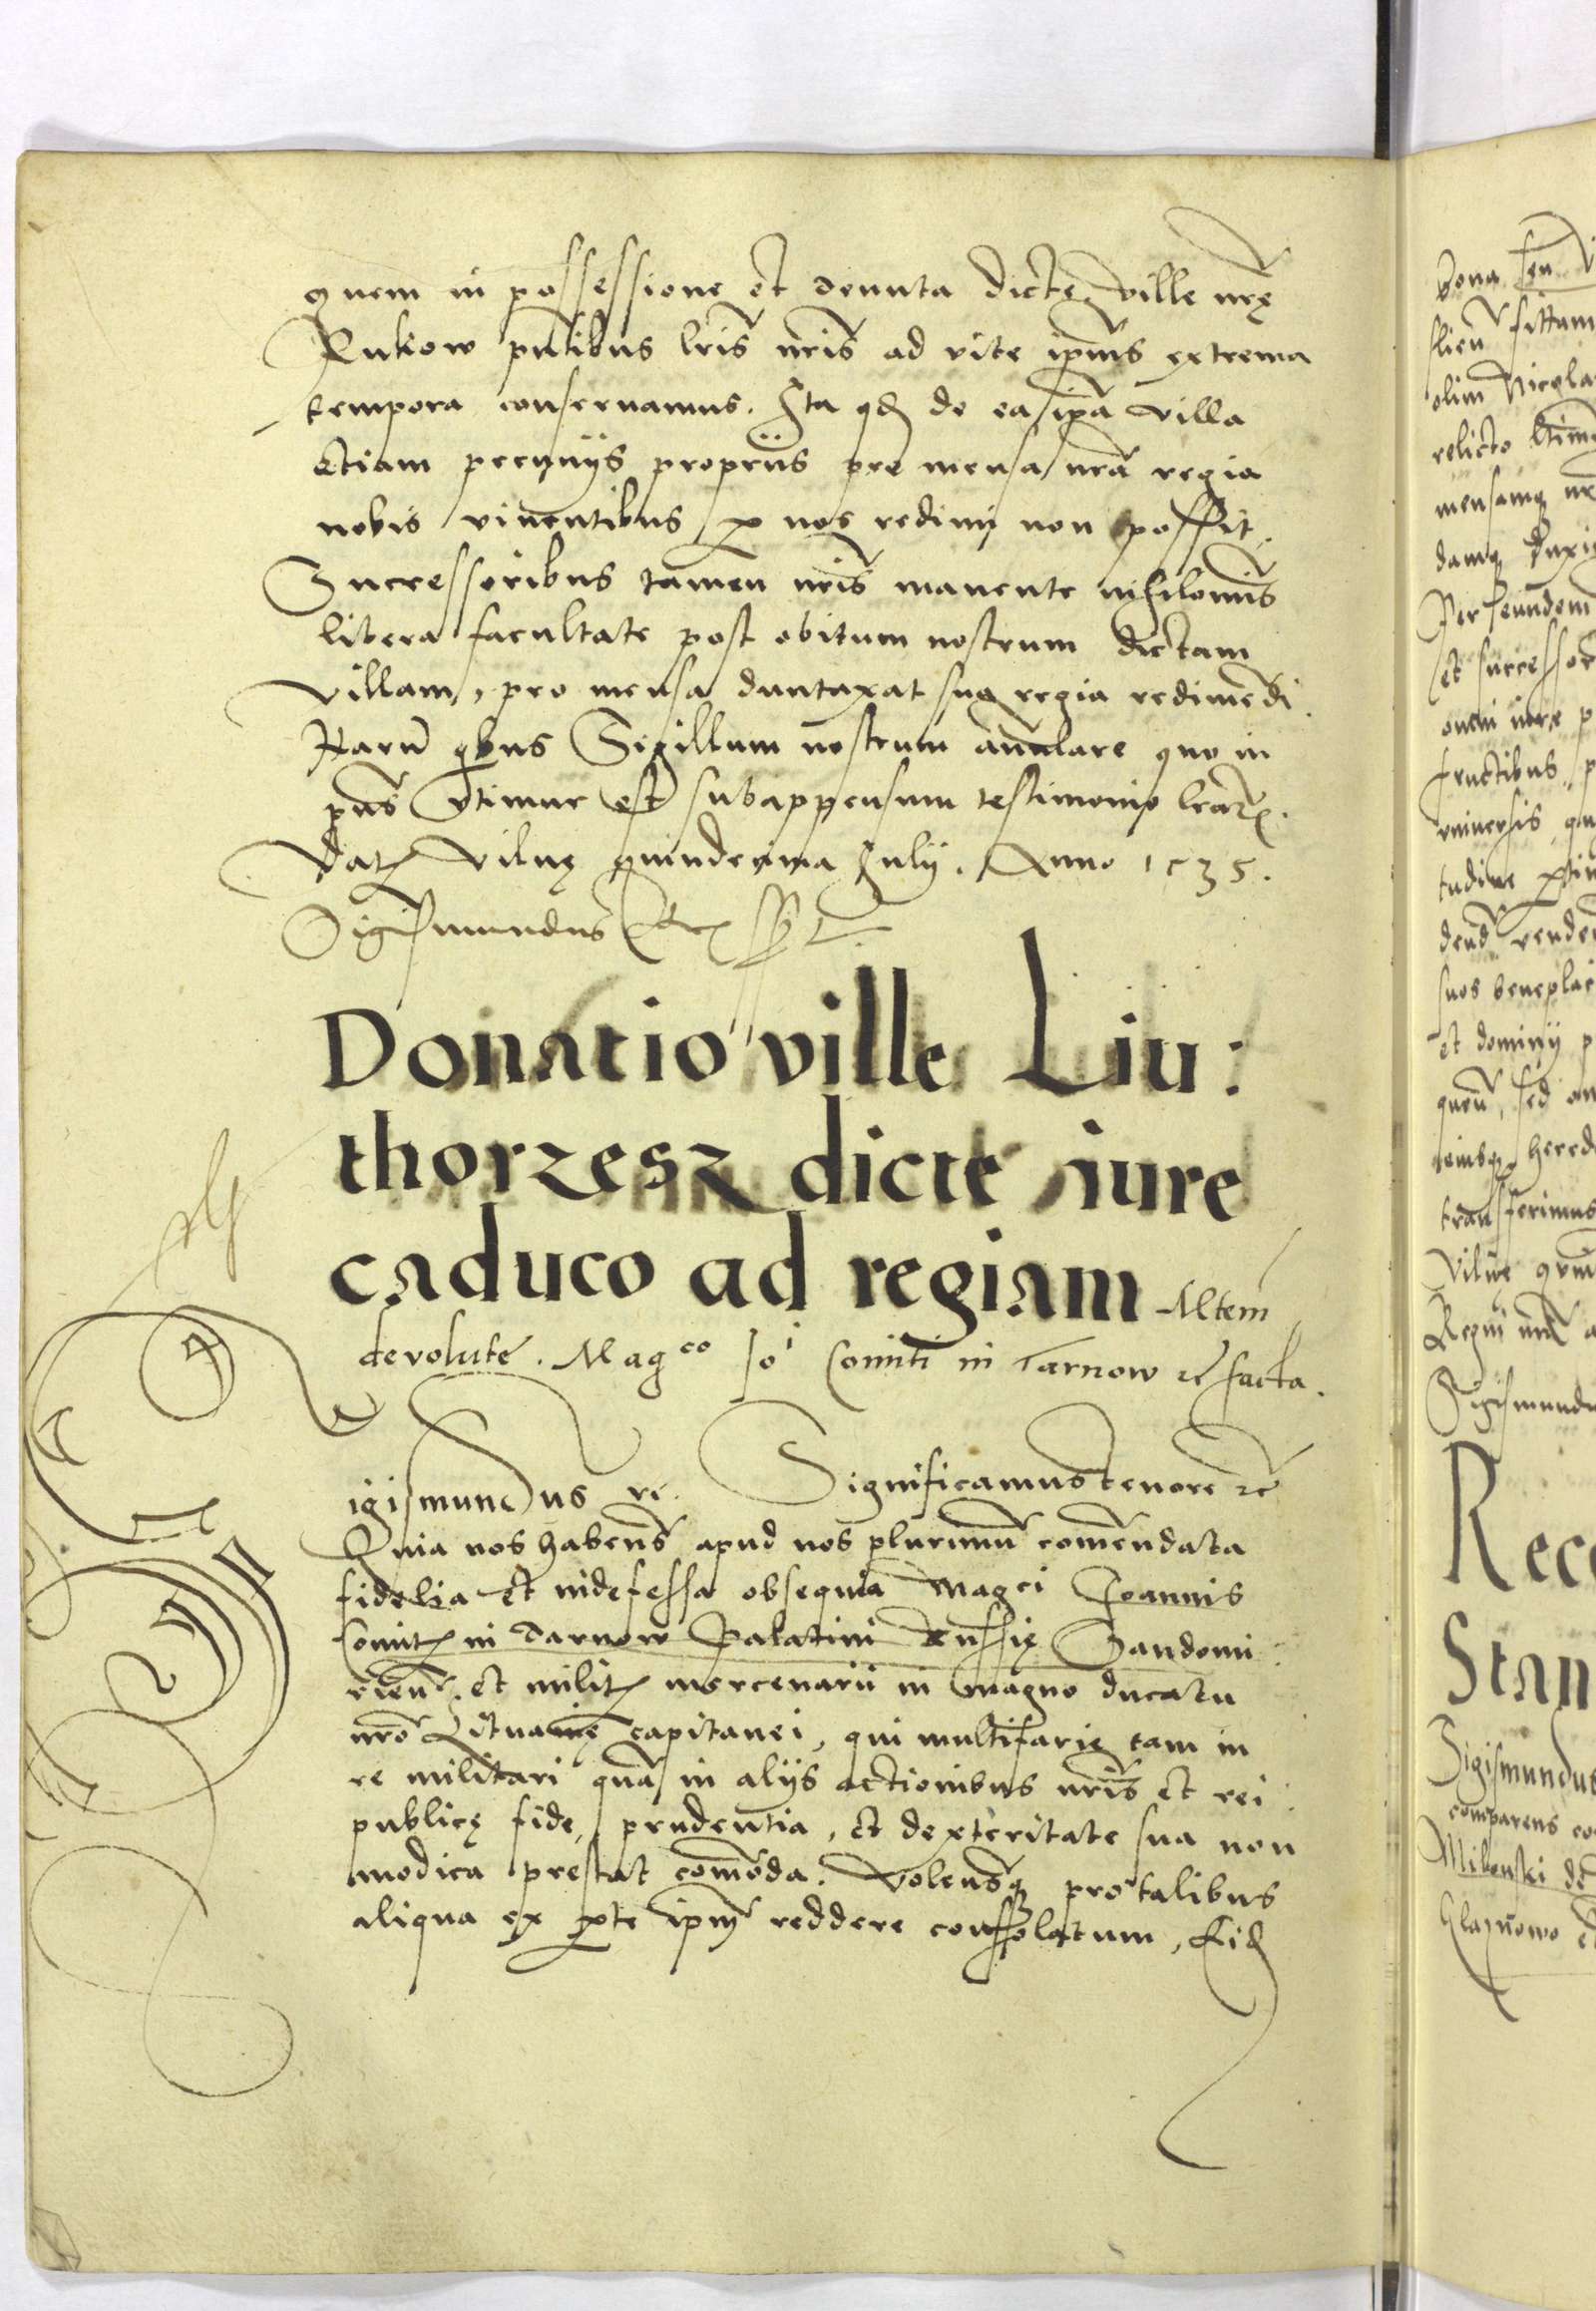 quem in possessione et tenuta dicte ville nrę
Rukow pntibus lris nris ad vite ipius extrema
tempora conservamus. Ita qd de ea ipa villa
etiam pecunijs proprijs pre mensa nra regia
nobis viventibus p nos redimi non possit.
Successoribus tamen nris manente nihilomis
libera facultate post obitum nostrum dictam
villam, pro mensa duntaxat sua regia redimedi.
Haru qbus Sigillum nostrum annulare quo in
pns Vtimur est subappensum testimonio lrarz.
Datz Vilnę quindecima Julij. Anno 1535.
Sigismundus Rex sst
Donatio ville Liu:
thorzesz dicte iure
caduco ad regiam Mtem
devolute. Magco Jo Comiti in Tarnow zc facta.
Sigismundus rc. Significamus tenore zc
Quia nos habens apud nos plurimu comendata
fidelia et indefessa obsequia Magci Joannis
Comitz in Tarnow Palatini Russię Sandomi
rien et militz mercenarij in Magno ducatu
nro Lituanię capitanei, qui multifarię tam in
re militari qua in alijs actionibus nris et rei
publicę fide, prudentia, et dexteritate sua non
modica prestat comoda. Volensq pro talibus
aliqua ex pte ipm reddere consolatum, Eid
bona seu
olim Nicola
relicto
mensamq nr
damq duxi
Per eundem
et successor
fructibus, p
universis, qu
suos beneplac
et dominij p
quou, sed om
eiusq hered
transferimus
Vilnę quin
Sigismundu
Rece
Stan
Sigismundus
comparens co